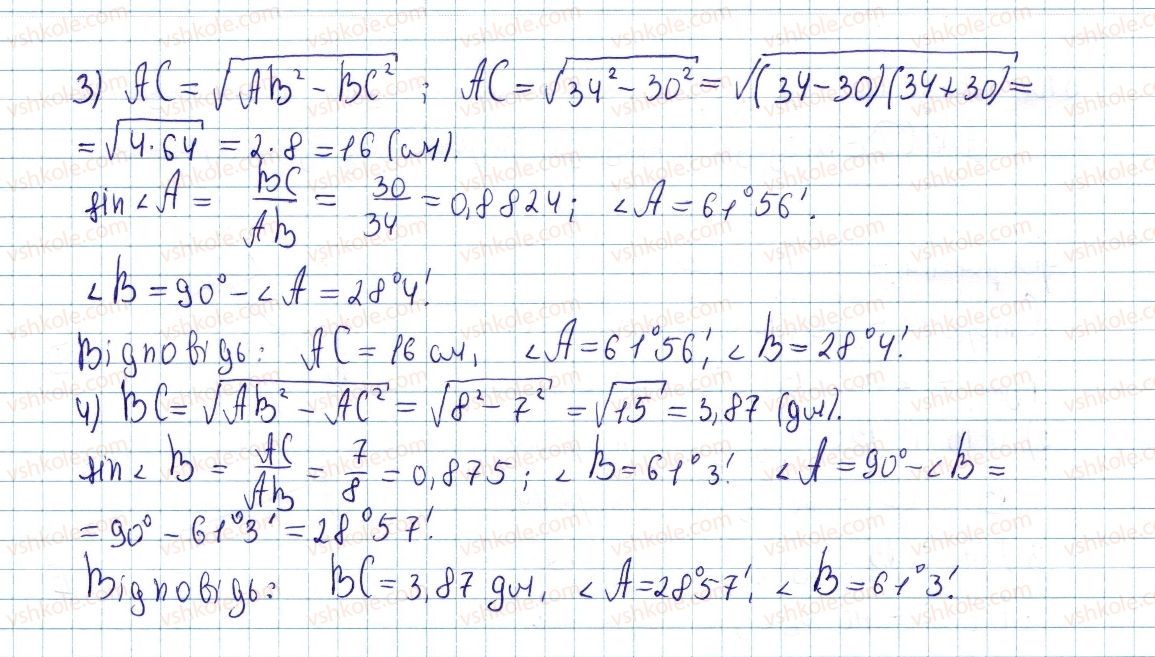 3) AC = √(AB² − BC²) ; AC = √(34² − 30²) = √((34−30)(34+30)) =
= √(4·64) = 2·8 = 16 (см).
sin∠A = BC/AB = 30/34 = 0,8824; ∠A = 61°56′.
∠B = 90° − ∠A = 28°4′.
Відповідь: AC = 16 см, ∠A = 61°56′, ∠B = 28°4′.
4) BC = √(AB² − AC²) = √(8² − 7²) = √15 = 3,87 (дм).
sin∠B = AC/AB = 7/8 = 0,875; ∠B = 61°3′. ∠A = 90° − ∠B =
= 90° − 61°3′ = 28°57′.
Відповідь: BC = 3,87 дм, ∠A = 28°57′, ∠B = 61°3′.
vshkole.com